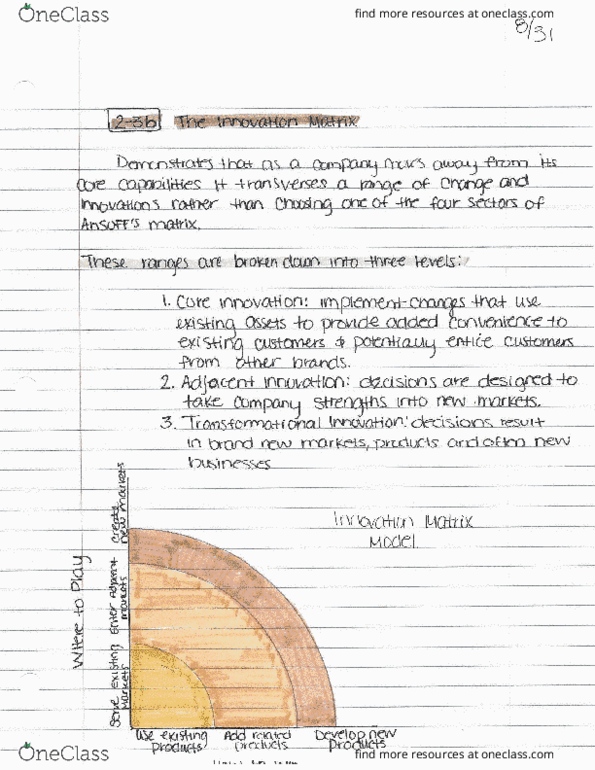 OneClass
find more resources at oneclass.com
8/31
2-3b The Innovation Matrix
Demonstrates that as a company moves away from its
core capabilities it transverses a range of change and
innovations rather than choosing one of the four sectors of
Ansoff's matrix.
These ranges are broken down into three levels:
1. Core innovation: implement changes that use
existing assets to provide added convenience to
existing customers & potentially entice customers
from other brands.
2. Adjacent innovation: decisions are designed to
take company strengths into new markets.
3. Transformational Innovation: decisions result
in brand new markets, products and often new
businesses
Innovation Matrix
Model
Where to Play
create
new markets
Enter Adjacent
markets
Serve existing
markets
Use existing
products
Add related
products
Develop new
products
OneClass
find more resources at oneclass.com